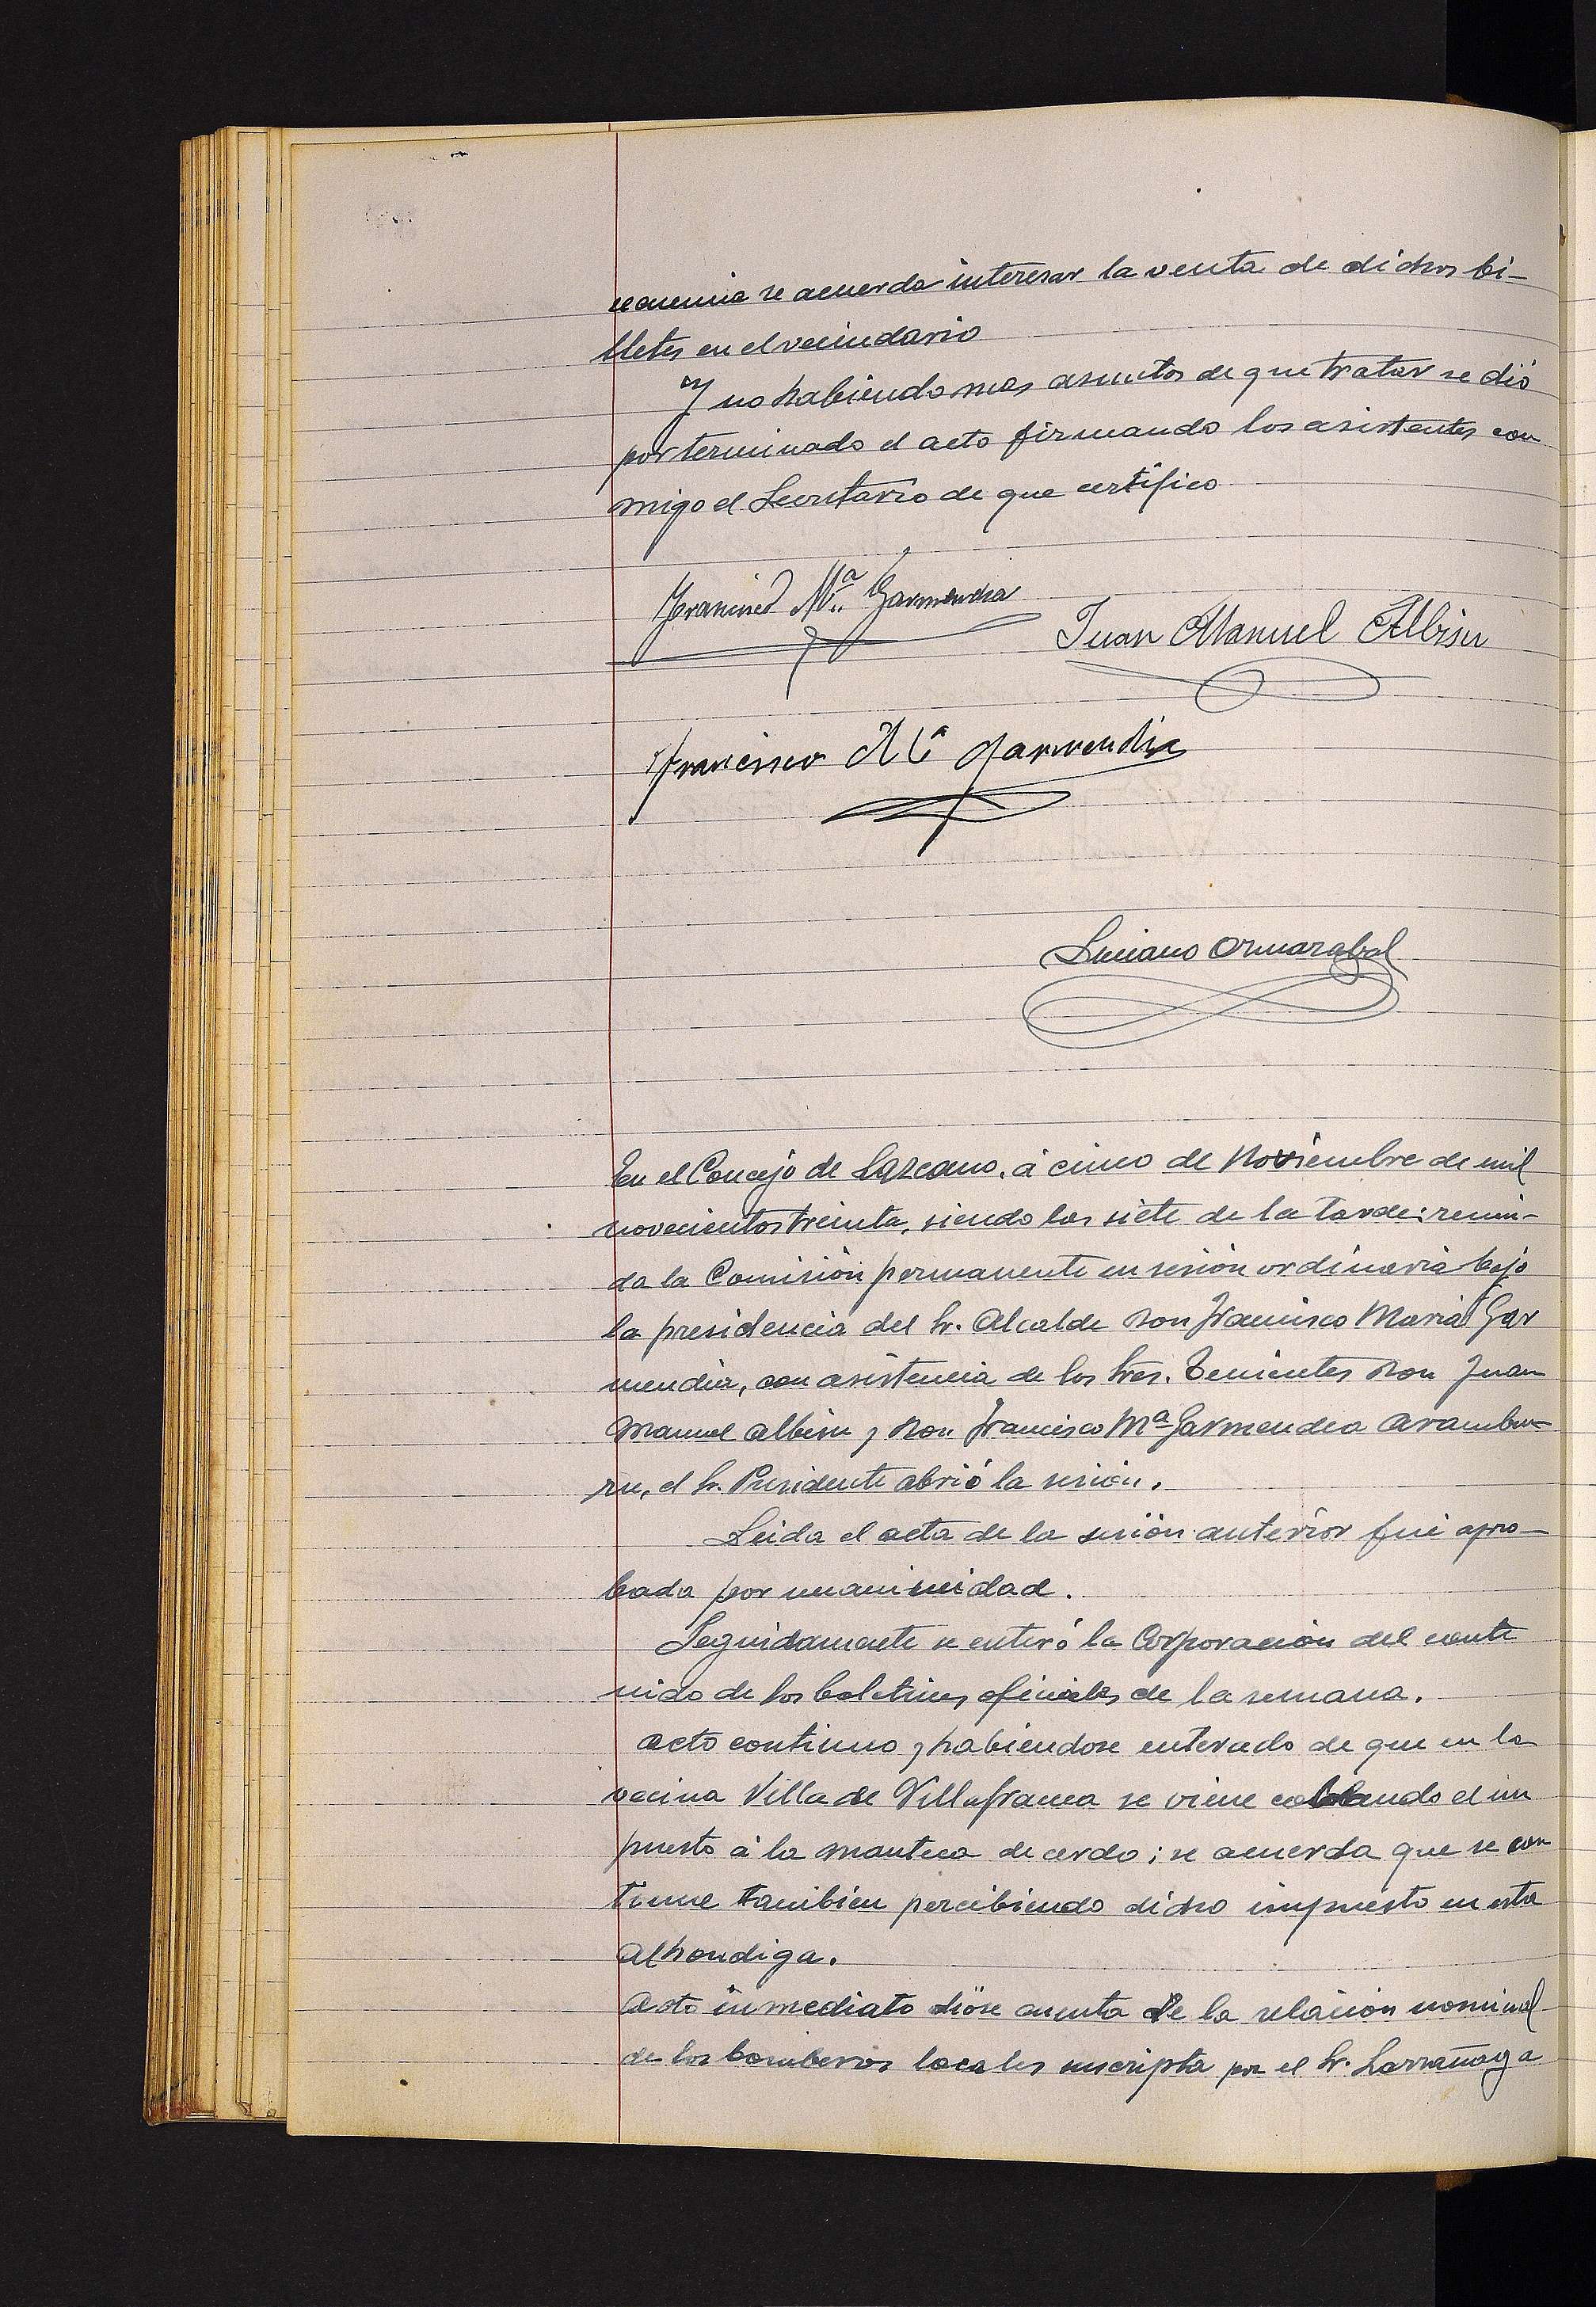 secuencia se acuerda interesar la venta de dichos bi-
lletes en el vecindario
Y no habiendo mas asuntos de que tratar se dió
por terminado el acto firmando los asistentes con
migo el Secretario de que certifico
Francisco Mª Garmendia
Juan Manuel Albisu
Francisco Mª Garmendia
Luciano Ormazabal
En el Concejo de Lazcano, á cinco de Noviembre de mil
novecientos treinta, siendo las siete de la tarde: reuni-
da la Comisión permanente en sesión ordinaria bajo
la presidencia del Sr. Alcalde Don Francisco Maria Gar
mendia, con asistencia de los Sres. Tenientes Don Juan
Manuel Albisu y Don Francisco Mª Garmendia Arambu-
ru, el Sr. Presidente abrió la sesión.
Leida el acta de la sesión anterior fué apro-
bada por unanimidad.
Seguidamente se enteró la Corporación del conte
nido de los boletines oficiales de la semana.
Acto continuo y habiendose enterado de que en la
vecina Villa de Villafranca se viene cobrando el im
puesto á la manteca de cerdo; se acuerda que se con
tinue tambien percibiendo dicho impuesto en esta
alhondiga.
Acto inmediato dióse cuenta de la relación nominal
de los bomberos locales suscripta por el Sr. Larrañaga